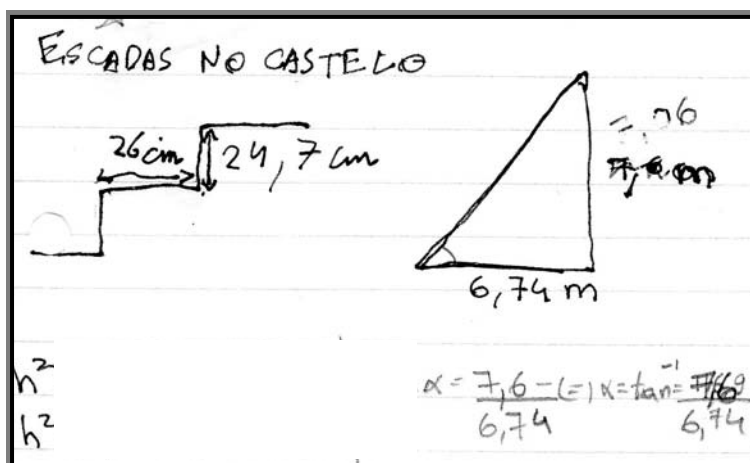 ESCADAS NO CASTELO
26 cm
24,7 cm
6,74 m
h²
h²
α = 7,6 (=) α = tan⁻¹ =
6,74 6,74